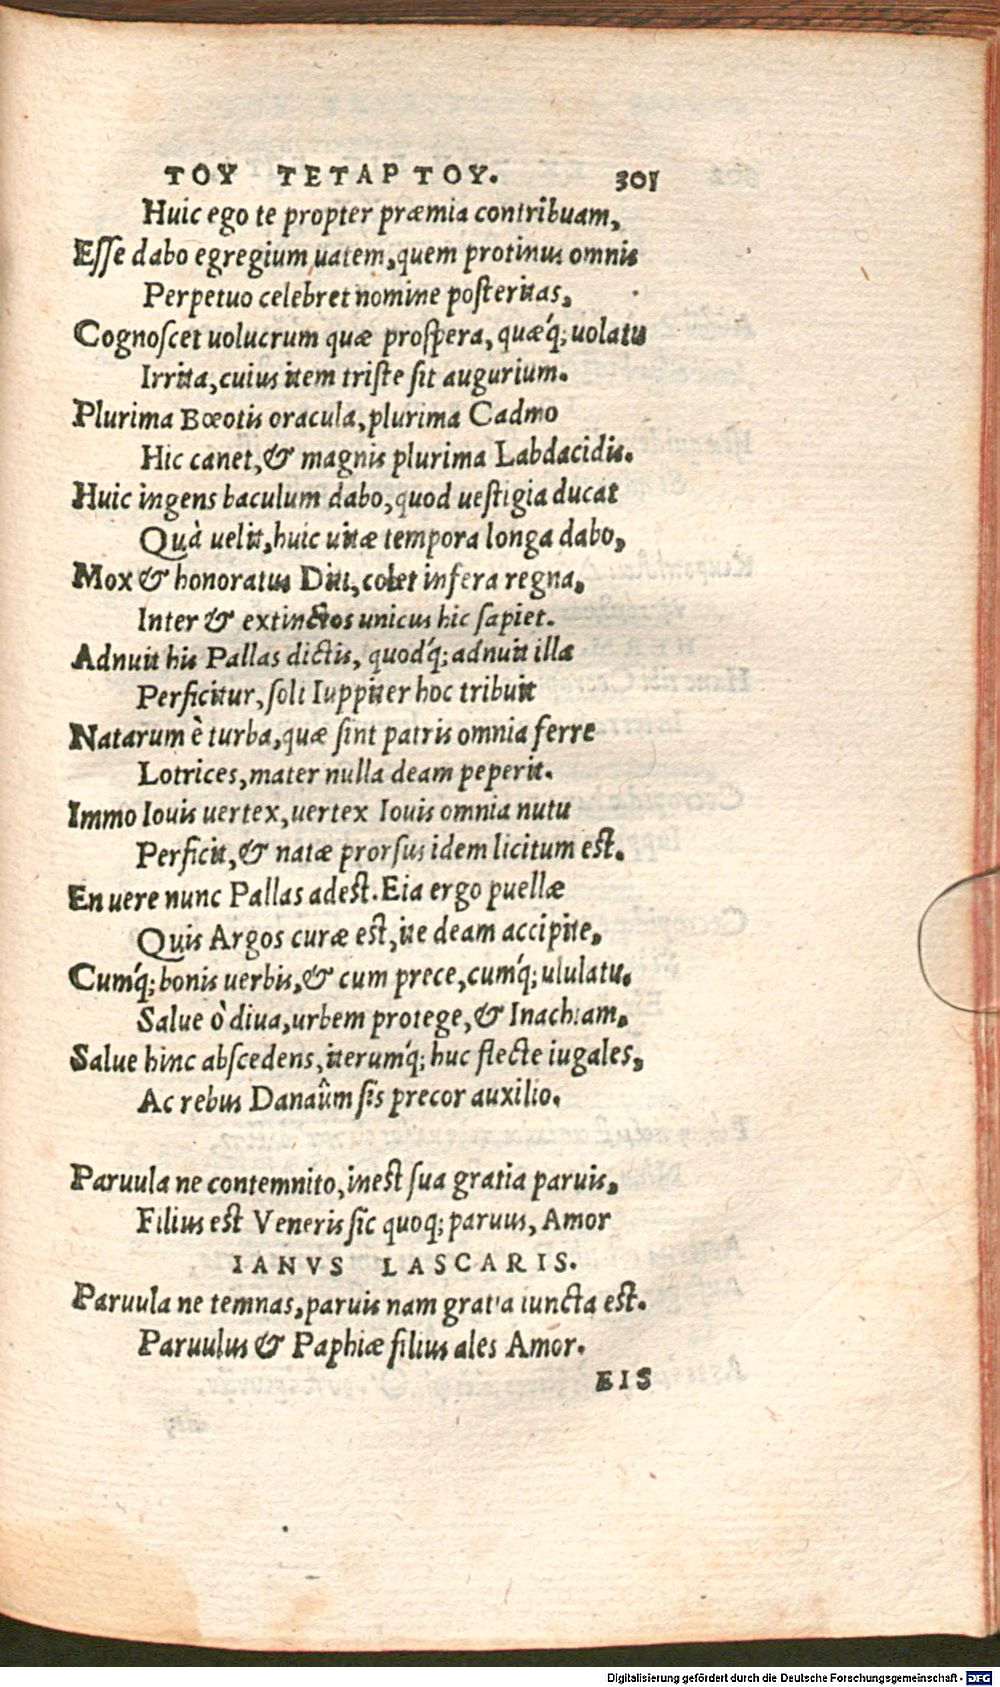 ΤΟΥ ΤΕΤΑΡΤΟΥ. 301
Huic ego te propter præmia contribuam,
Esse dabo egregium uatem, quem protinus omnis
Perpetuo celebret nomine posteritas,
Cognoscet uolucrum quæ prospera, quæq́; uolatu
Irrita, cuius item triste sit augurium.
Plurima Bœotis oracula, plurima Cadmo
Hic canet, & magnis plurima Labdacidis.
Huic ingens baculum dabo, quod uestigia ducat
Quà uelit, huic uitæ tempora longa dabo,
Mox & honoratus Diti, colet infera regna,
Inter & extinctos unicus hic sapiet.
Adnuit his Pallas dictis, quodq́; adnuit illa
Perficitur, soli Iuppiter hoc tribuit
Natarum è turba, quæ sint patris omnia ferre
Lotrices, mater nulla deam peperit.
Immo Iouis uertex, uertex Iouis omnia nutu
Perficit, & natæ prorsus idem licitum est.
En uere nunc Pallas adest. Eia ergo puellæ
Quis Argos curæ est, ite deam accipite,
Cumq́; bonis uerbis, & cum prece, cumq́; ululatu.
Salue ò diua, urbem protege, & Inachiam,
Salue hinc abscedens, iterumq́; huc flecte iugales,
Ac rebus Danaûm sis precor auxilio.
Paruula ne contemnito, inest sua gratia paruis,
Filius est Veneris sic quoq; paruus, Amor
IANVS LASCARIS.
Paruula ne temnas, paruis nam gratia iuncta est.
Paruulus & Paphiæ filius ales Amor.
ΕΙΣ
Digitalisierung gefördert durch die Deutsche Forschungsgemeinschaft - DFG